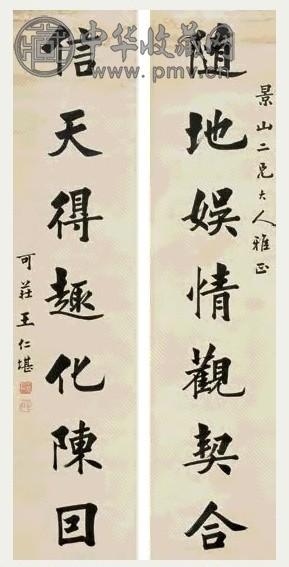 中华收藏网
www.pmv.cn
景山二兄大人雅正
随地娱情觀契合
信天得趣化陳回
可莊王仁堪